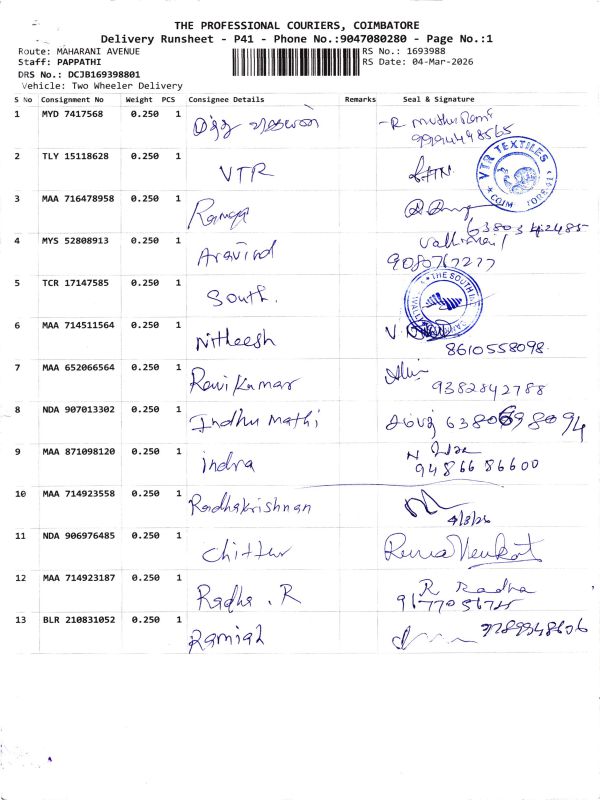 THE PROFESSIONAL COURIERS, COIMBATORE
Delivery Runsheet - P41 - Phone No.:9047080280 - Page No.:1
Route: MAHARANI AVENUE RS No.: 1693988
Staff: PAPPATHI RS Date: 04-Mar-2026
DRS No.: DCJB169398801
Vehicle: Two Wheeler Delivery
S No Consignment No Weight PCS Consignee Details Remarks Seal & Signature
1 MYD 7417568 0.250 1
9994498565
2 TLY 15118628 0.250 1 VTR
VTR TEXTILES
3 MAA 716478958 0.250 1
4 MYS 52808913 0.250 1 Aravind
9080767277
5 TCR 17147585 0.250 1 South.
THE SOUTH
6 MAA 714511564 0.250 1 Nitheesh
8610558098
7 MAA 652066564 0.250 1 Ravi Kumar
9382842788
8 NDA 907013302 0.250 1 Indhu Mathi
9 MAA 871098120 0.250 1 indra
94866 86600
10 MAA 714923558 0.250 1 Radhakrishnan
4/3/26
11 NDA 906976485 0.250 1 Chittur
12 MAA 714923187 0.250 1 Radha . R R Radha
13 BLR 210831052 0.250 1 Ramiah